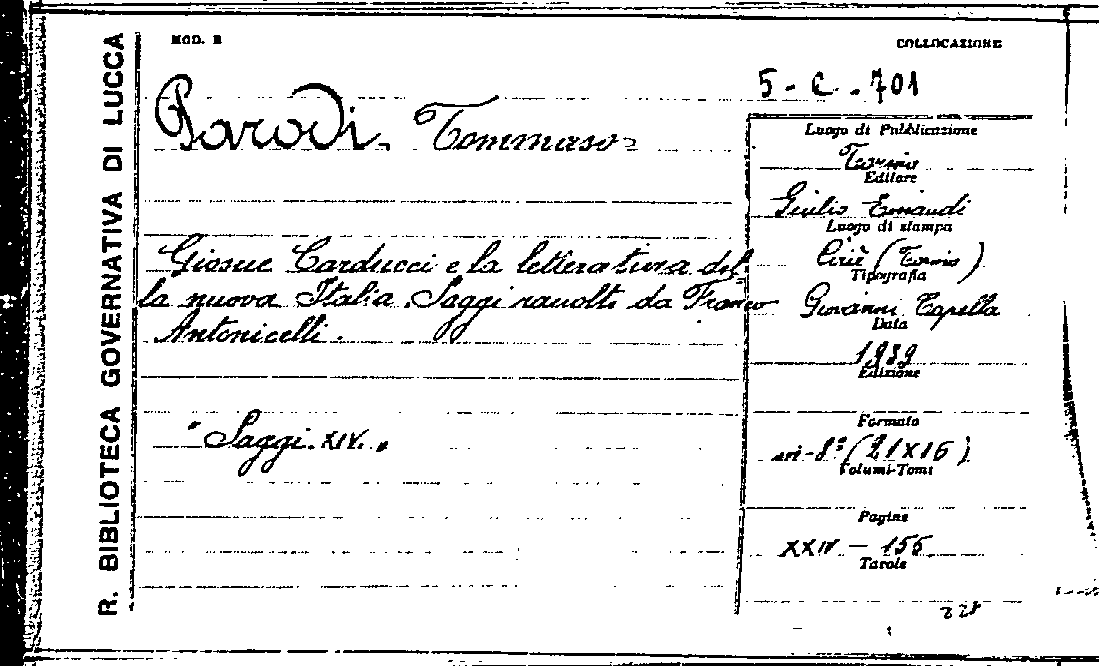 R. BIBLIOTECA GOVERNATIVA DI LUCCA
MOD. B
COLLOCAZIONE
5 - C - 701
Parodi Tommaso
Giosue Carducci e la letteratura del-
la nuova Italia Saggi raccolti da Franco
Antonicelli.
"Saggi. XIV."
Luogo di Pubblicazione
Torino
Editore
Giulio Einaudi
Luogo di stampa
Ciriè (Torino)
Tipografia
Giovanni Capella
Data
1939
Edizione
Formato
in-8° (21X16)
Volumi-Tomi
Pagine
XXIV - 155
Tavole